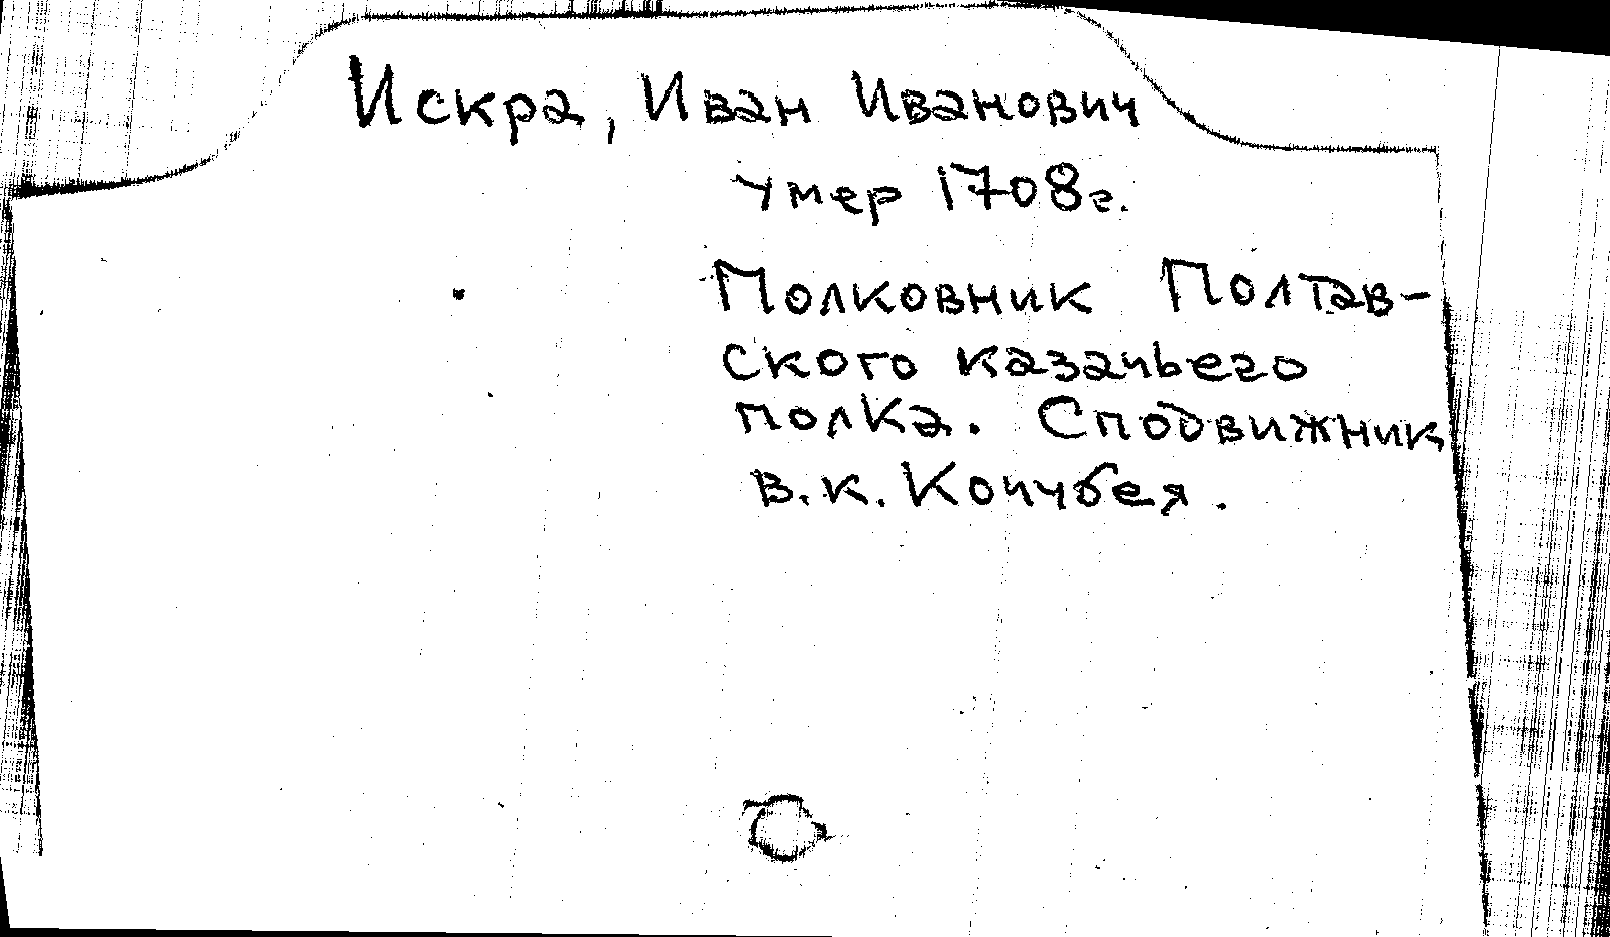 Искра, Иван Иванович
умер 1708г.
Полковник Полтав-
ского казачьего
полка. Сподвижник
В.К. Кочубея.